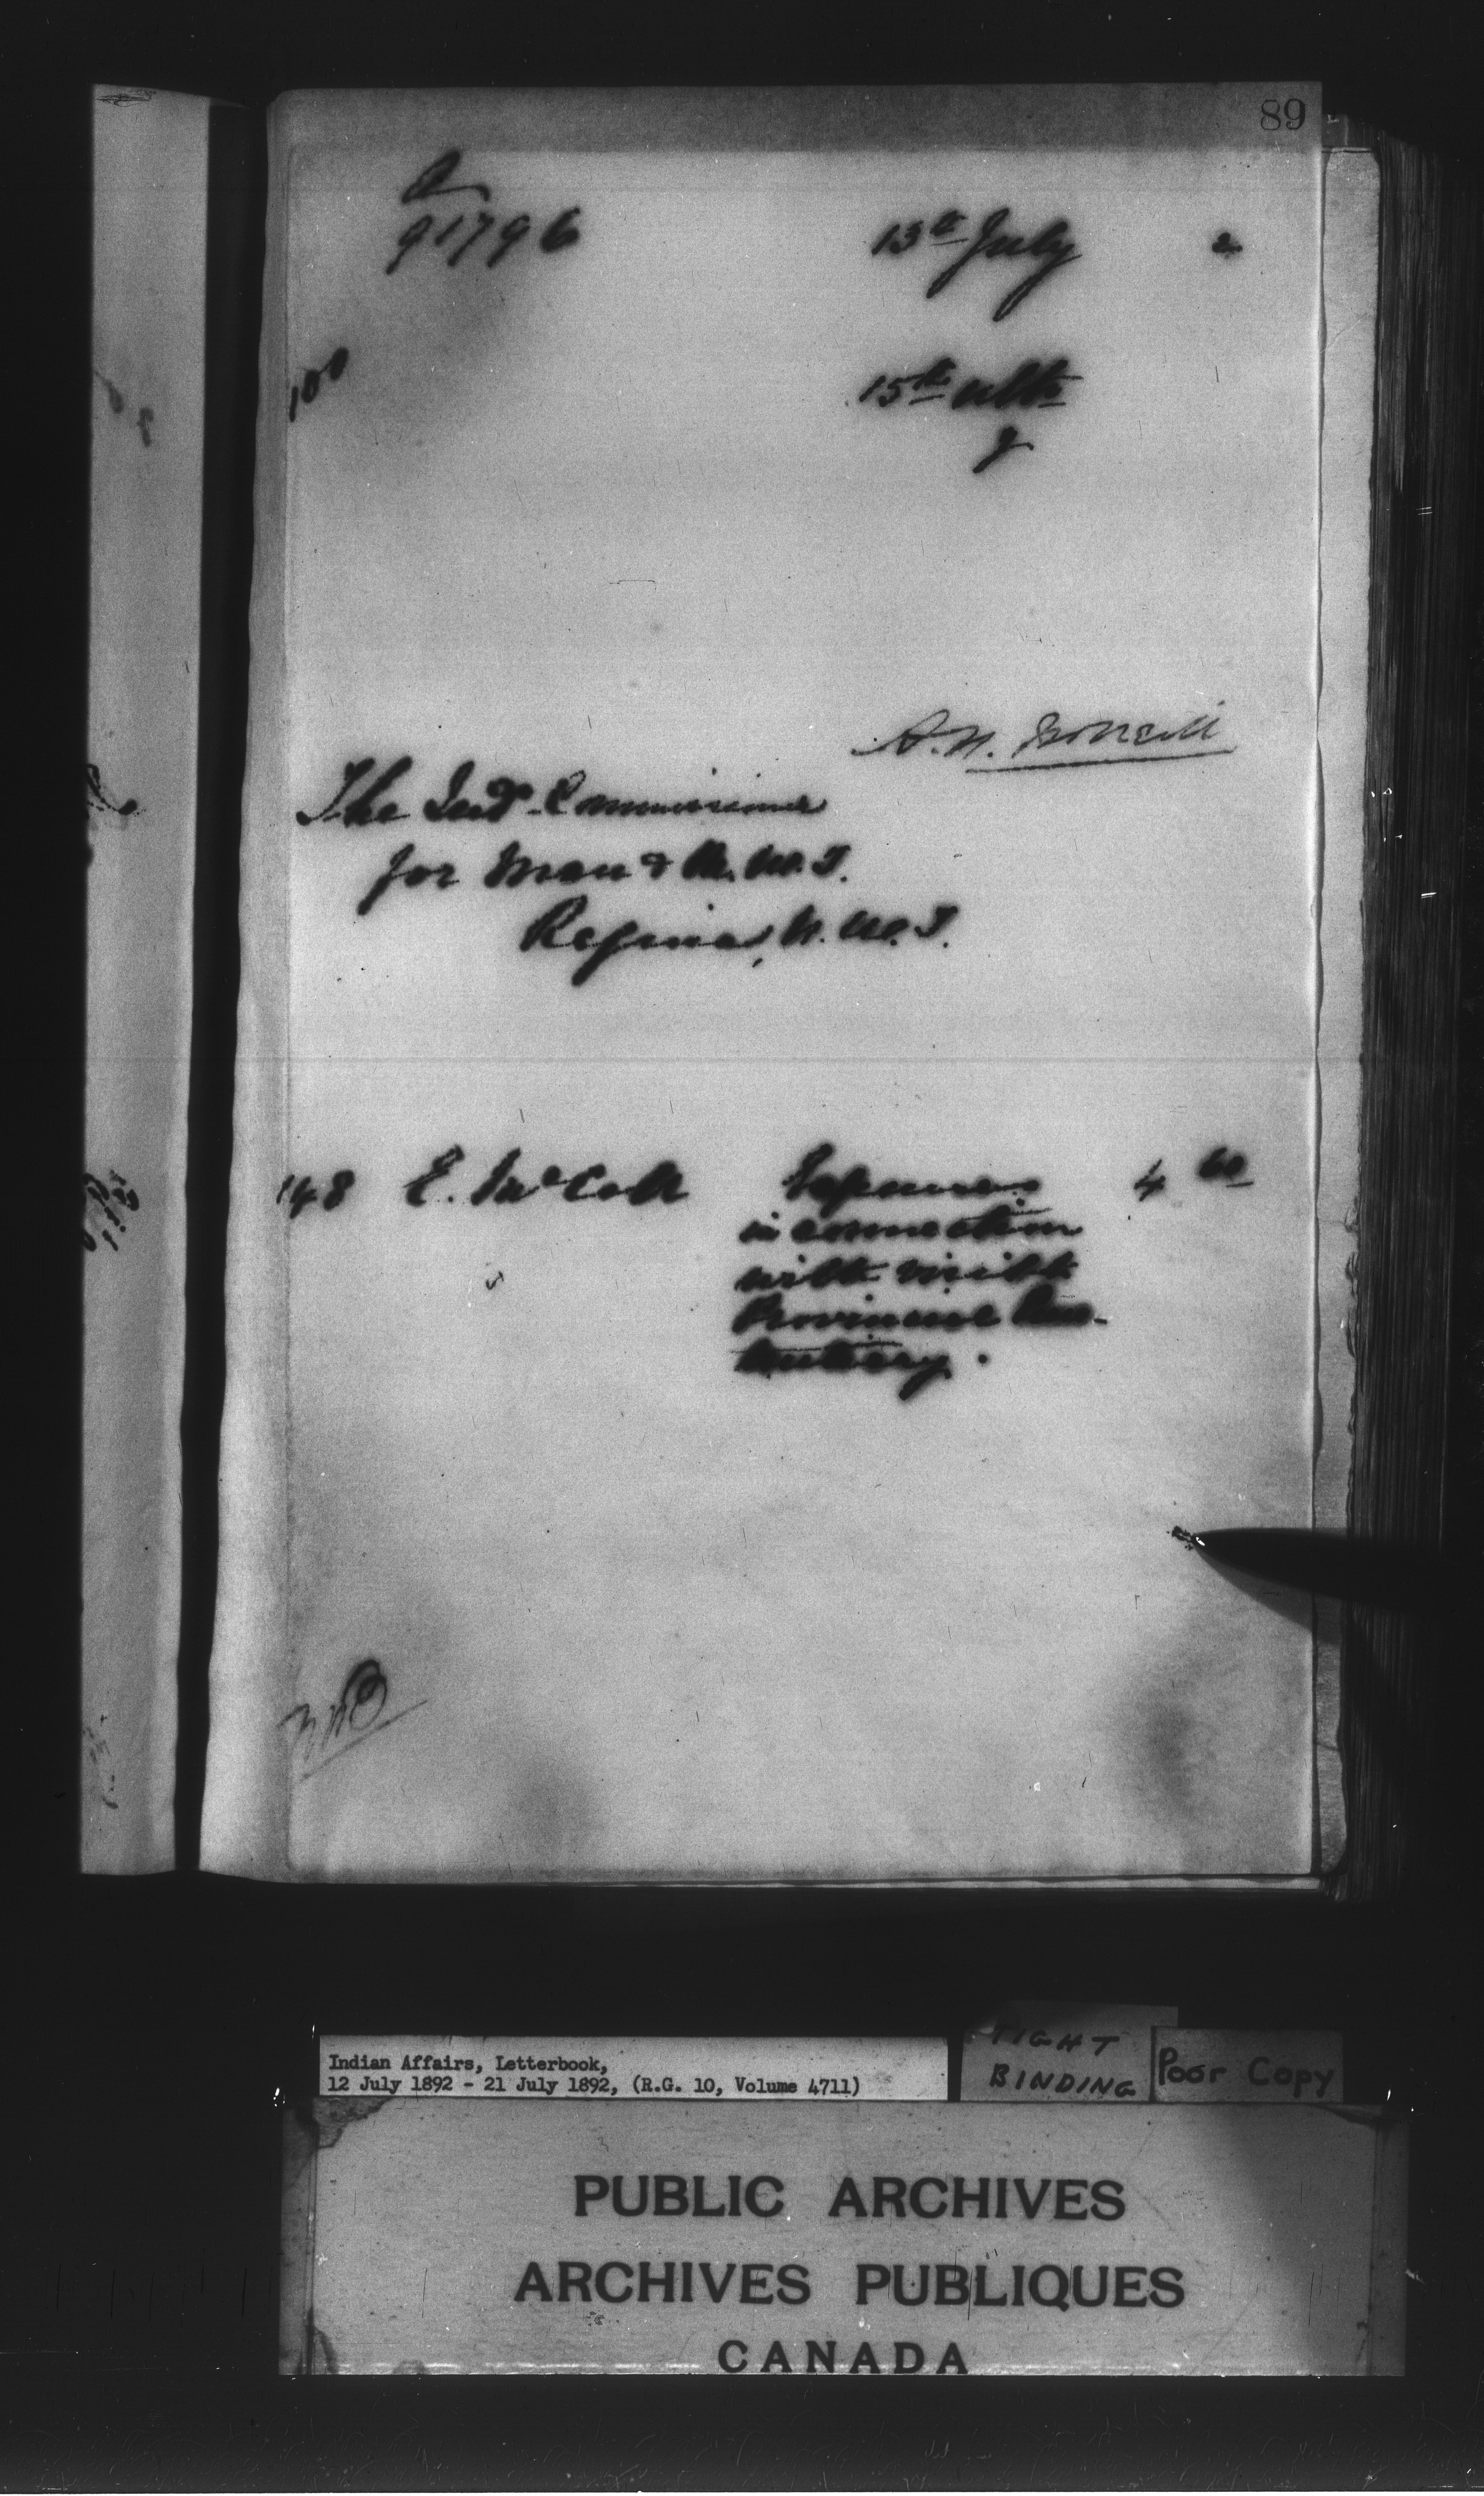 89
91796
13th July 2
100
15th ulto
The Ind. Commissioner
for Man & N.W.T.
Regina, N.W.T.
148 E. McColl Expenses 4 60
in connection
with visit to
Provincial Peni-
tentiary.
Indian Affairs, Letterbook,
12 July 1892 - 21 July 1892, (R.G. 10, Volume 4711)
TIGHT
BINDING
Poor Copy
PUBLIC ARCHIVES
ARCHIVES PUBLIQUES
CANADA